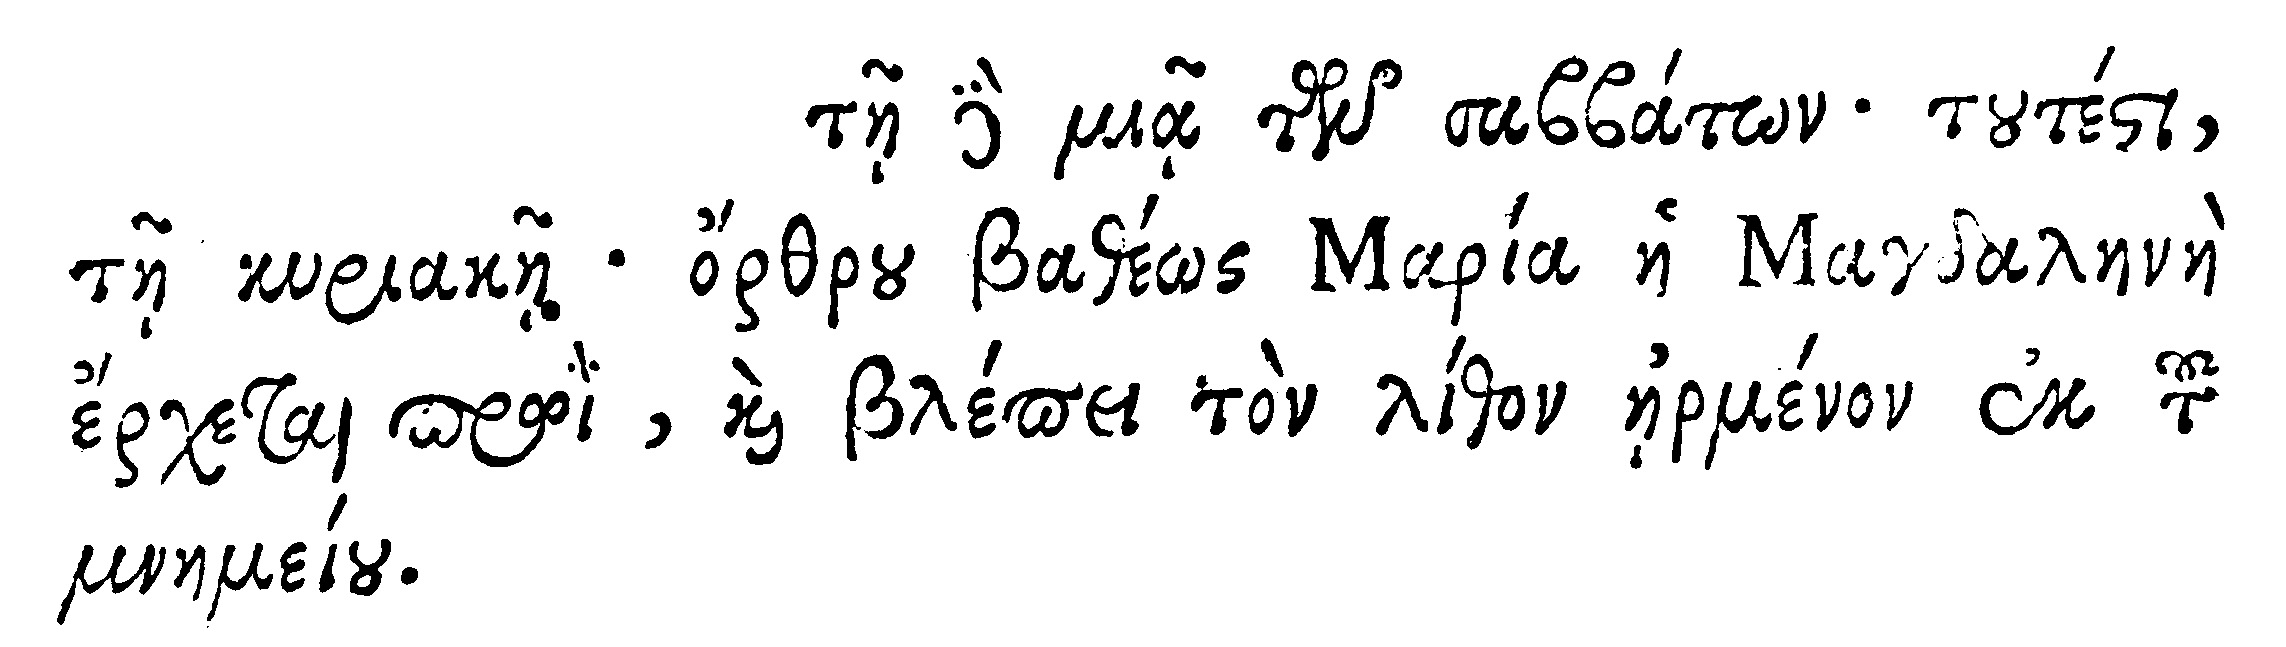 τῇ δὲ μιᾷ τῶν σαββάτων· τουτέστι,
τῇ κυριακῇ· ὄρθρου βαθέως Μαρία ἡ Μαγδαληνὴ
ἔρχεται πρωῒ, καὶ βλέπει τὸν λίθον ἠρμένον ἐκ τοῦ
μνημείου.